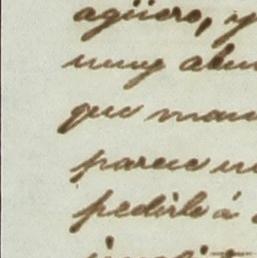 agüero, y
muy abu
que man
parece u
pedirle á